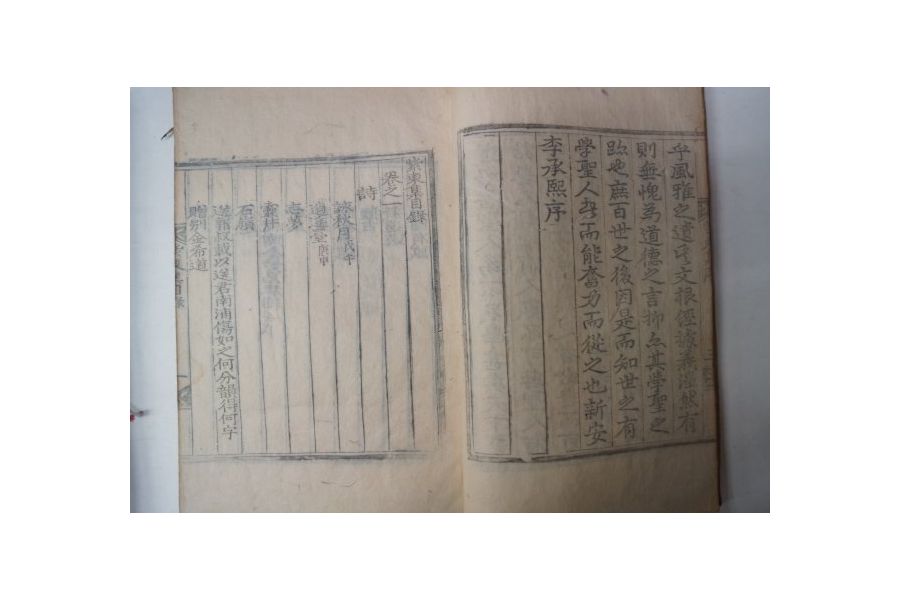 乎風雅之遺受文根經據義渾然有
則無愧爲道德之言抑亦其學聖之
跡也庶百世之後因是而知世之有
學聖人者而能奮力而從之也新安
李承熙序
東集目錄
卷之一
詩
詠秋月戊午
道善堂庚申
志夢
石
送君南浦傷如之何分韻得何字
贈別金希道